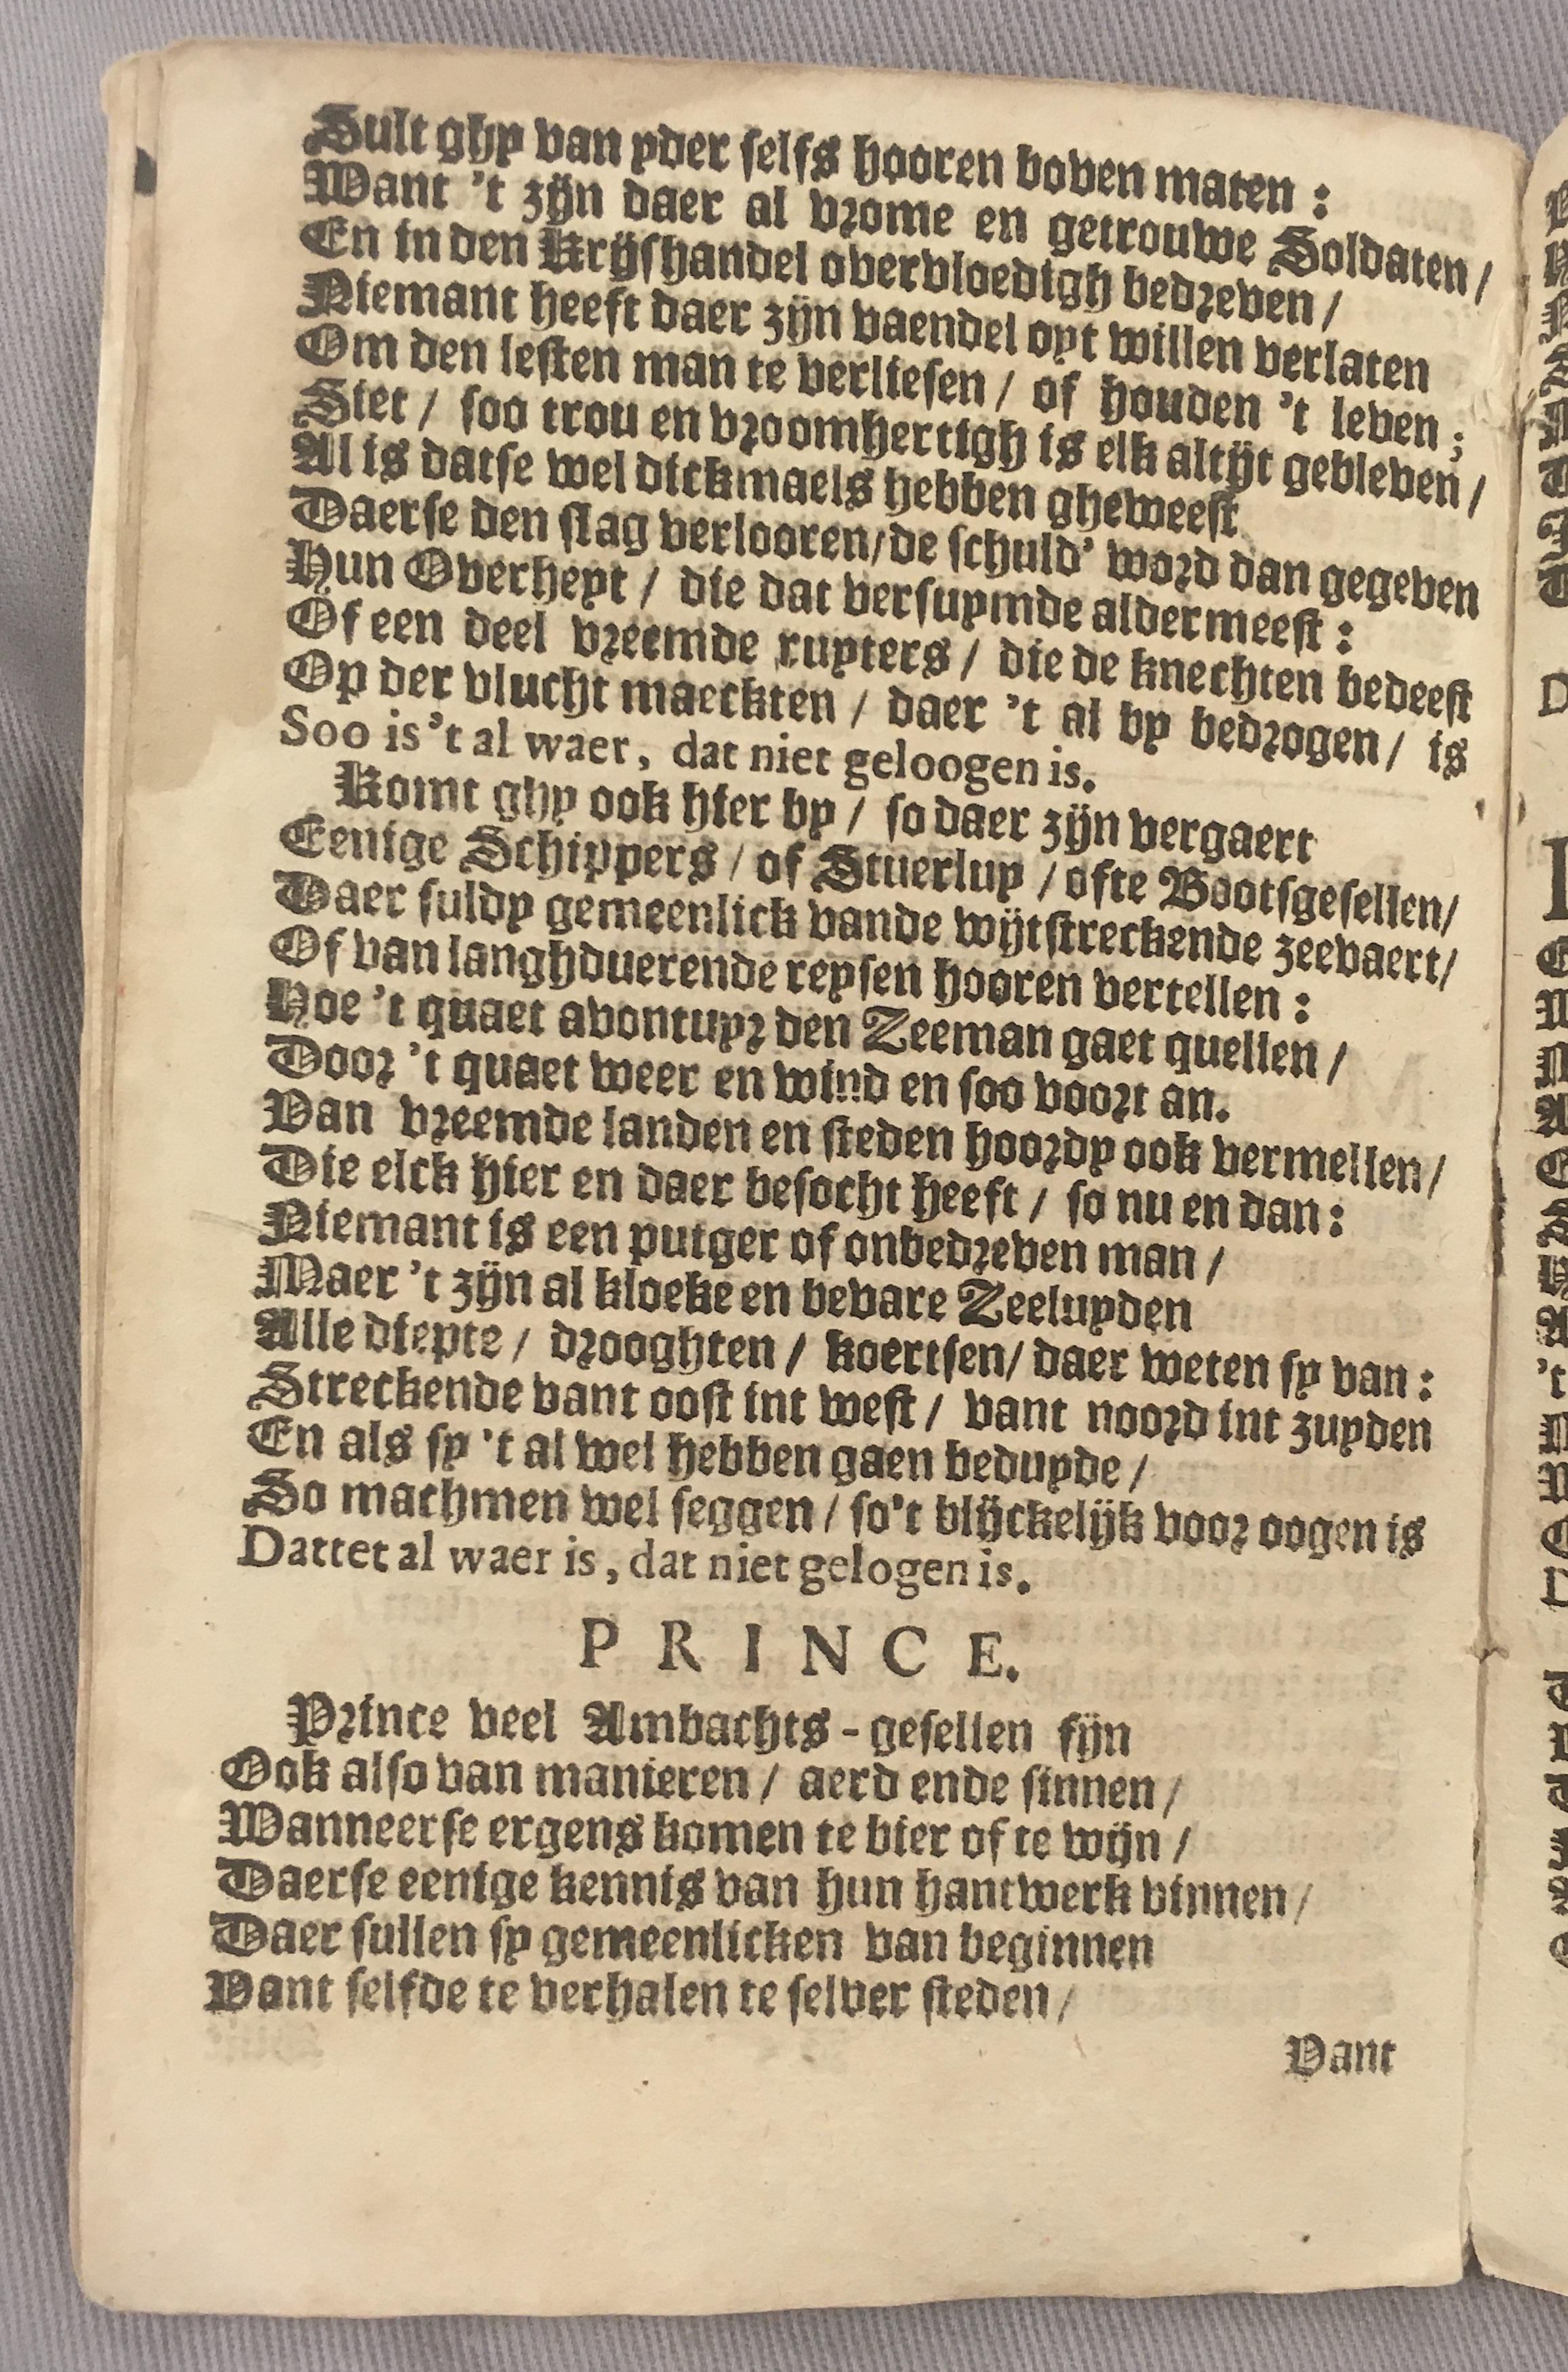 Sult ghy van yder selfs hooren boven maten :
Want 't zijn daer al vrome en getrouwe Soldaten /
En in den Krijshandel overvloedigh bedreven /
Niemant heeft daer zijn vaendel oyt willen verlaten
Om den lesten man te verliesen / of houden 't leven ;
Siet / soo trou en vroomhertigh is elk altijt gebleven /
Al is datse wel dickmaels hebben gheweest
Daerse den slag verlooren / de schuld' word dan gegeven
Hun Overheyt / die dat versuymde aldermeest :
Of een deel vreemde ruyters / die de knechten bedeest
Op der vlucht maeckten / daer 't al by bedrogen / is
Soo is 't al waer, dat niet geloogen is.
Komt ghy ook hier by / so daer zijn vergaert
Eenige Schippers / of Stuerluy / ofte Bootsgesellen /
Daer suldy gemeenlick vande wijtstreckende zeevaert /
Of van langhduerende reysen hooren vertellen :
Hoe 't quaet avontuyr den Zeeman gaet quellen /
Door 't quaet weer en wind en soo voort an.
Van vreemde landen en steden hoordy ook vermellen /
Die elck hier en daer besocht heeft / so nu en dan :
Niemant is een putger of onbedreven man /
Maer 't zijn al kloeke en bevare Zeeluyden
Alle diepte / drooghten / koertsen / daer weten sy van :
Streckende vant oost int west / vant noord int zuyden
En als sy 't al wel hebben gaen beduyde /
So machmen wel seggen / so't blijckelijk voor oogen is
Dattet al waer is, dat niet gelogen is.
PRINCE.
Prince veel Ambachts-gesellen fijn
Ook also van manieren / aerd ende sinnen /
Wanneerse ergens komen te bier of te wijn /
Daerse eenige kennis van hun hantwerk vinnen /
Daer sullen sy gemeenlicken van beginnen
Vant selfde te verhalen te selver steden /
Vant